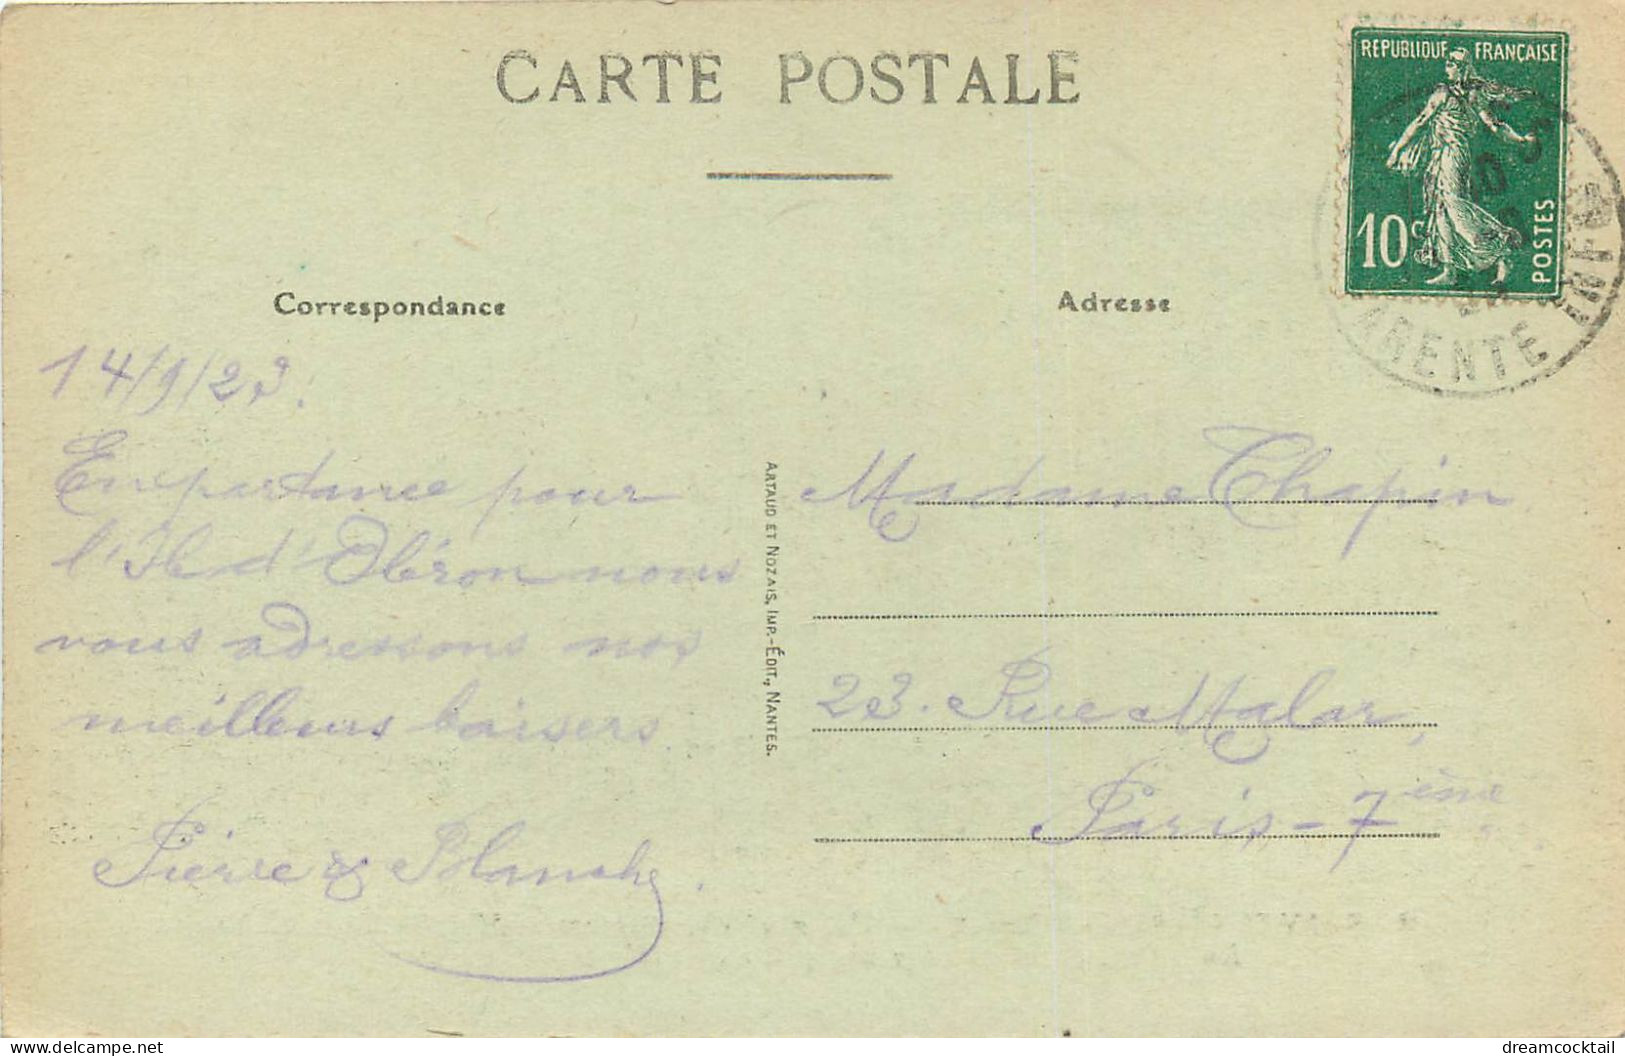 CARTE POSTALE
RÉPUBLIQUE FRANÇAISE
10c
POSTES
ARENTE INFRE
Correspondance
Adresse
14/9/23.
En partance pour
l'Ile d'Oléron nous
vous adressons nos
meilleurs baisers
Pierre & Blanche.
ARTAUD ET NOZAIS, IMP.-ÉDIT., NANTES.
Madame Chapin
23. Rue Malar,
Paris-7ème
delcampe.net
dreamcocktail